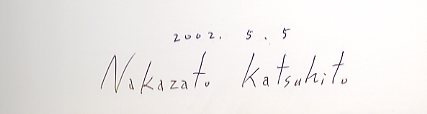 2002. 5. 5
Nakazato Katsuhito